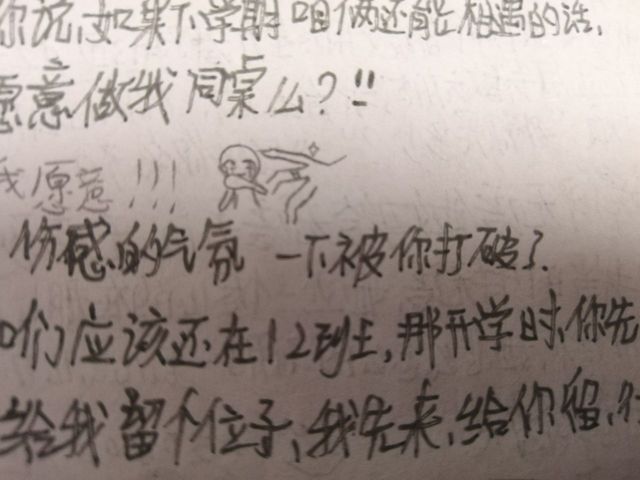 你说,如果下学期咱俩还能相遇的话,
愿意做我同桌么?!!
我愿意!!!
伤感的气氛一下被你打破了.
咱们应该还在12班,那开学时,你先
给我留个位子,我先来,给你留,行